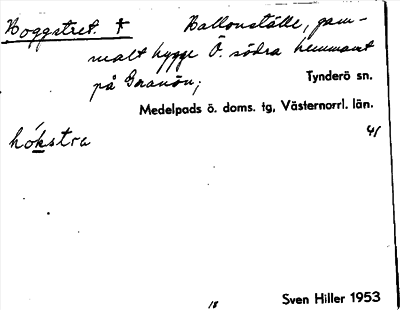 Boggstret. * Ballonställe, gam-
malt bygge Ö. södra hemmanet
på Granön;
Tynderö sn.
Medelpads ö. doms. tg, Västernorrl. län.
41
hókstra
18 Sven Hiller 1953